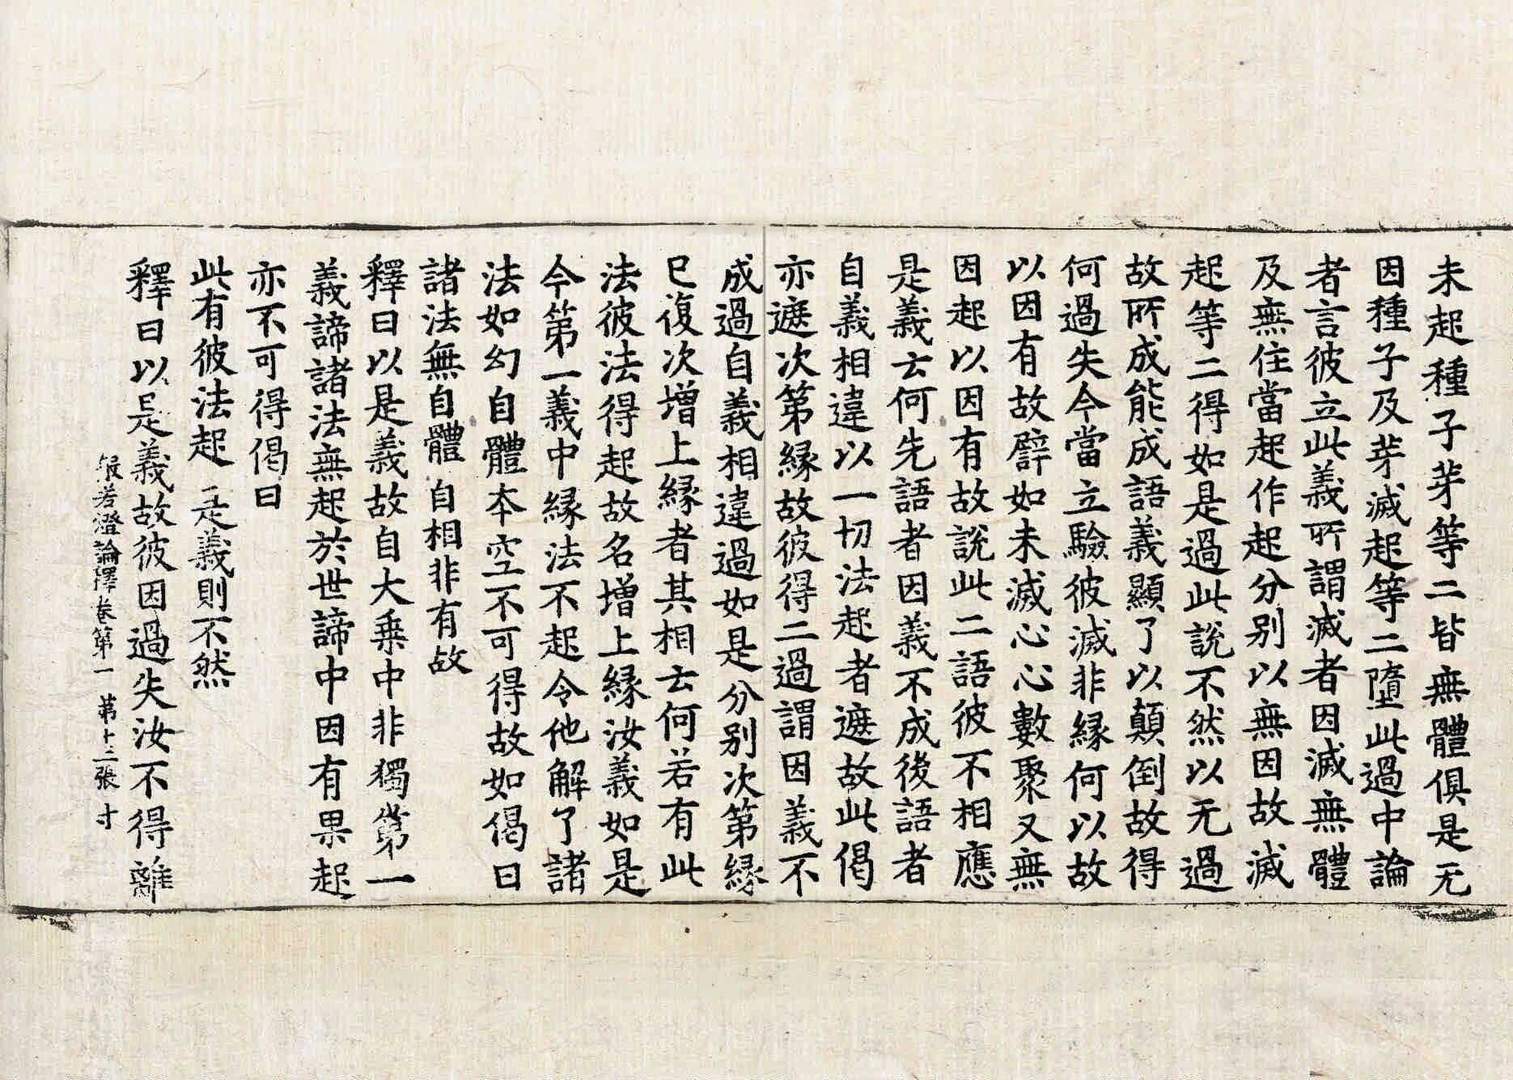 未起種子芽等二皆無體俱是无
因種子及芽滅起等二墮此過中論
者言彼立此義所謂滅者因滅無體
及無住當起作起分別以無因故滅
起等二得如是過此說不然以无過
故所成能成語義顯了以顛倒故得
何過失今當立驗彼滅非緣何以故
以因有故譬如未滅心心數聚又無
因起以因有故說此二語彼不相應
是義云何先語者因義不成後語者
自義相違以一切法起者遮故此偈
亦遮次第緣故彼得二過謂因義不
成過自義相違過如是分別次第緣
已復次增上緣者其相云何若有此
法彼法得起故名增上緣汝義如是
今第一義中緣法不起令他解了諸
法如幻自體本空不可得故如偈曰
諸法無自體 自相非有故
釋曰以是義故自大乘中非獨第一
義諦諸法無起於世諦中因有果起
亦不可得偈曰
此有彼法起 是義則不然
釋曰以是義故彼因過失汝不得離
般若燈論釋卷第一 第十三張 寸